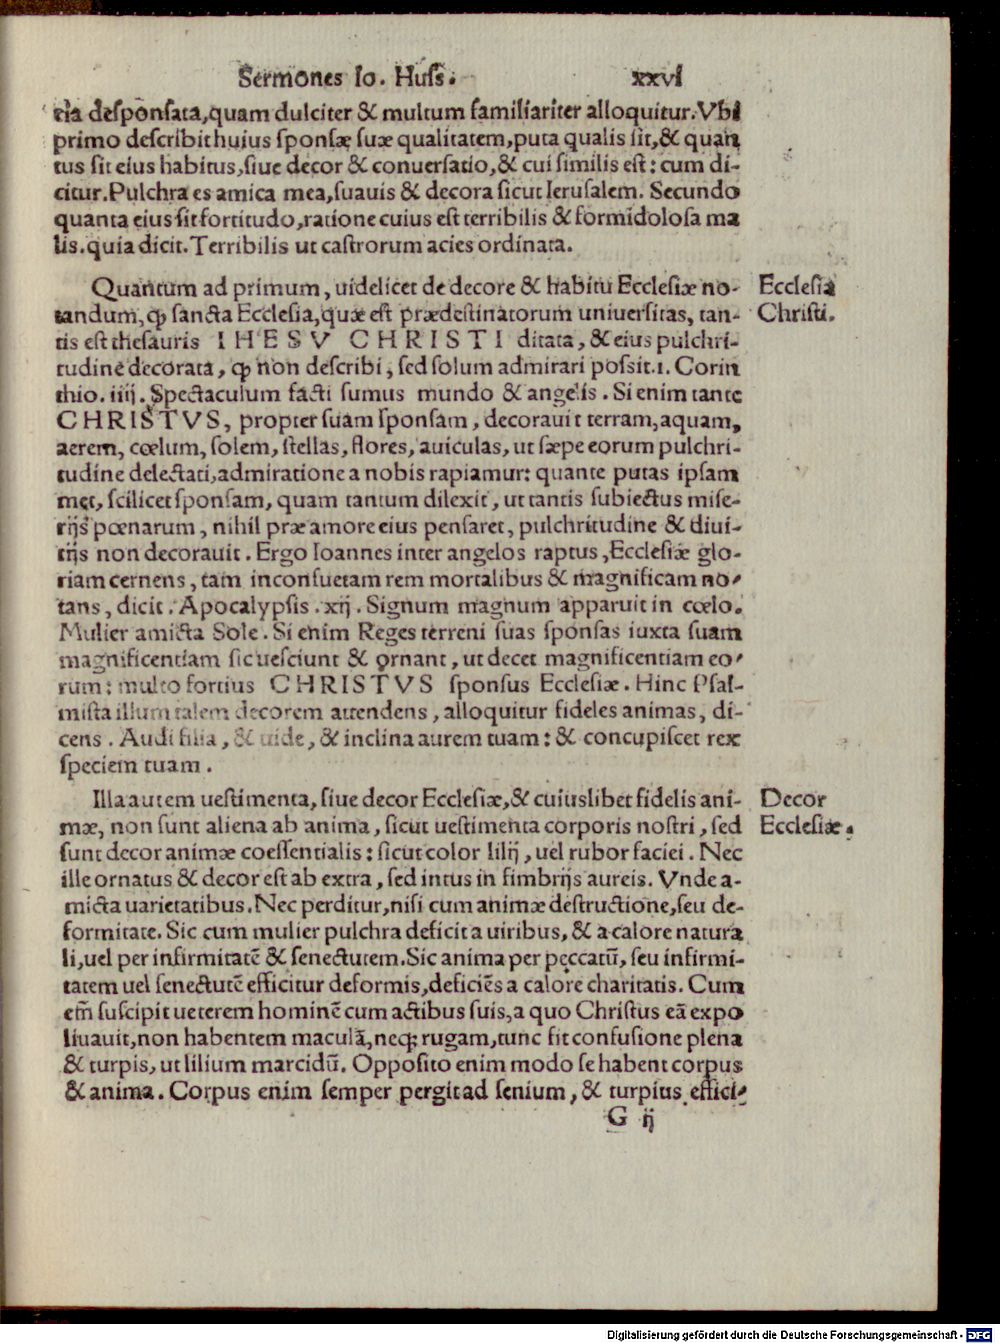 Sermones Io. Huſſ. xxvi
ria deſponſata,quam dulciter & multum familiariter alloquitur.Vbi
primo deſcribit huius ſponſæ ſuæ qualitatem,puta qualis ſit,& quan
tus ſit eius habitus,ſiue decor & conuerſatio,& cui ſimilis eſt: cum di-
citur.Pulchra es amica mea,ſuauis & decora ſicut Ieruſalem. Secundo
quanta eius ſit fortitudo,ratione cuius eſt terribilis & formidoloſa ma
lis.quia dicit.Terribilis ut caſtrorum acies ordinata.
Quantum ad primum, uidelicet de decore & habitu Eccleſiæ no-
tandum,ꝙ ſancta Eccleſia,quæ eſt prædeſtinatorum uniuerſitas, tan-
tis eſt theſauris IHESV CHRISTI ditata, & eius pulchri-
tudine decorata, ꝙ non deſcribi, ſed ſolum admirari poſſit.1. Corin
thio. iiij. Spectaculum facti ſumus mundo & angelis. Si enim tante
CHRISTVS, propter ſuam ſponſam, decorauit terram,aquam,
aerem, cœlum, ſolem, ſtellas, flores, auiculas, ut ſæpe eorum pulchri-
tudine delectati,admiratione a nobis rapiamur: quante putas ipſam
met, ſcilicet ſponſam, quam tantum dilexit, ut tantis ſubiectus miſe-
rijs pœnarum, nihil præ amore eius penſaret, pulchritudine & diui-
tijs non decorauit. Ergo Ioannes inter angelos raptus, Eccleſiæ glo-
riam cernens, tam inconſuetam rem mortalibus & magnificam no-
tans, dicit. Apocalypſis. xij. Signum magnum apparuit in cœlo.
Mulier amicta Sole. Si enim Reges terreni ſuas ſponſas iuxta ſuam
magnificentiam ſic ueſciunt & ornant, ut decet magnificentiam eo-
rum: multo fortius CHRISTVS ſponſus Eccleſiæ. Hinc Pſal-
miſta illum talem decorem attendens, alloquitur fideles animas, di-
cens. Audi filia, & uide, & inclina aurem tuam: & concupiſcet rex
ſpeciem tuam.
Eccleſia
Chriſti.
Illa autem ueſtimenta, ſiue decor Eccleſiæ,& cuiuslibet fidelis ani-
mæ, non ſunt aliena ab anima, ſicut ueſtimenta corporis noſtri, ſed
ſunt decor animæ coeſſentialis: ſicut color lilij, uel rubor faciei. Nec
ille ornatus & decor eſt ab extra, ſed intus in fimbrijs aureis. Vnde a-
micta uarietatibus. Nec perditur,niſi cum animæ deſtructione,ſeu de-
formitate. Sic cum mulier pulchra deficit a uiribus, & a calore natura
li,uel per infirmitatē & ſenectutem.Sic anima per peccatū, ſeu infirmi-
tatem uel ſenectutē efficitur deformis,deficiēs a calore charitatis. Cum
em̄ ſuſcipit ueterem hominē cum actibus ſuis,a quo Chriſtus eā expo
liuauit,non habentem maculā,neq; rugam,tunc fit confuſione plena
& turpis, ut lilium marcidū. Oppoſito enim modo ſe habent corpus
& anima. Corpus enim ſemper pergit ad ſenium, & turpius effici-
Decor
Eccleſiæ.
G ij
Digitalisierung gefördert durch die Deutsche Forschungsgemeinschaft - DFG